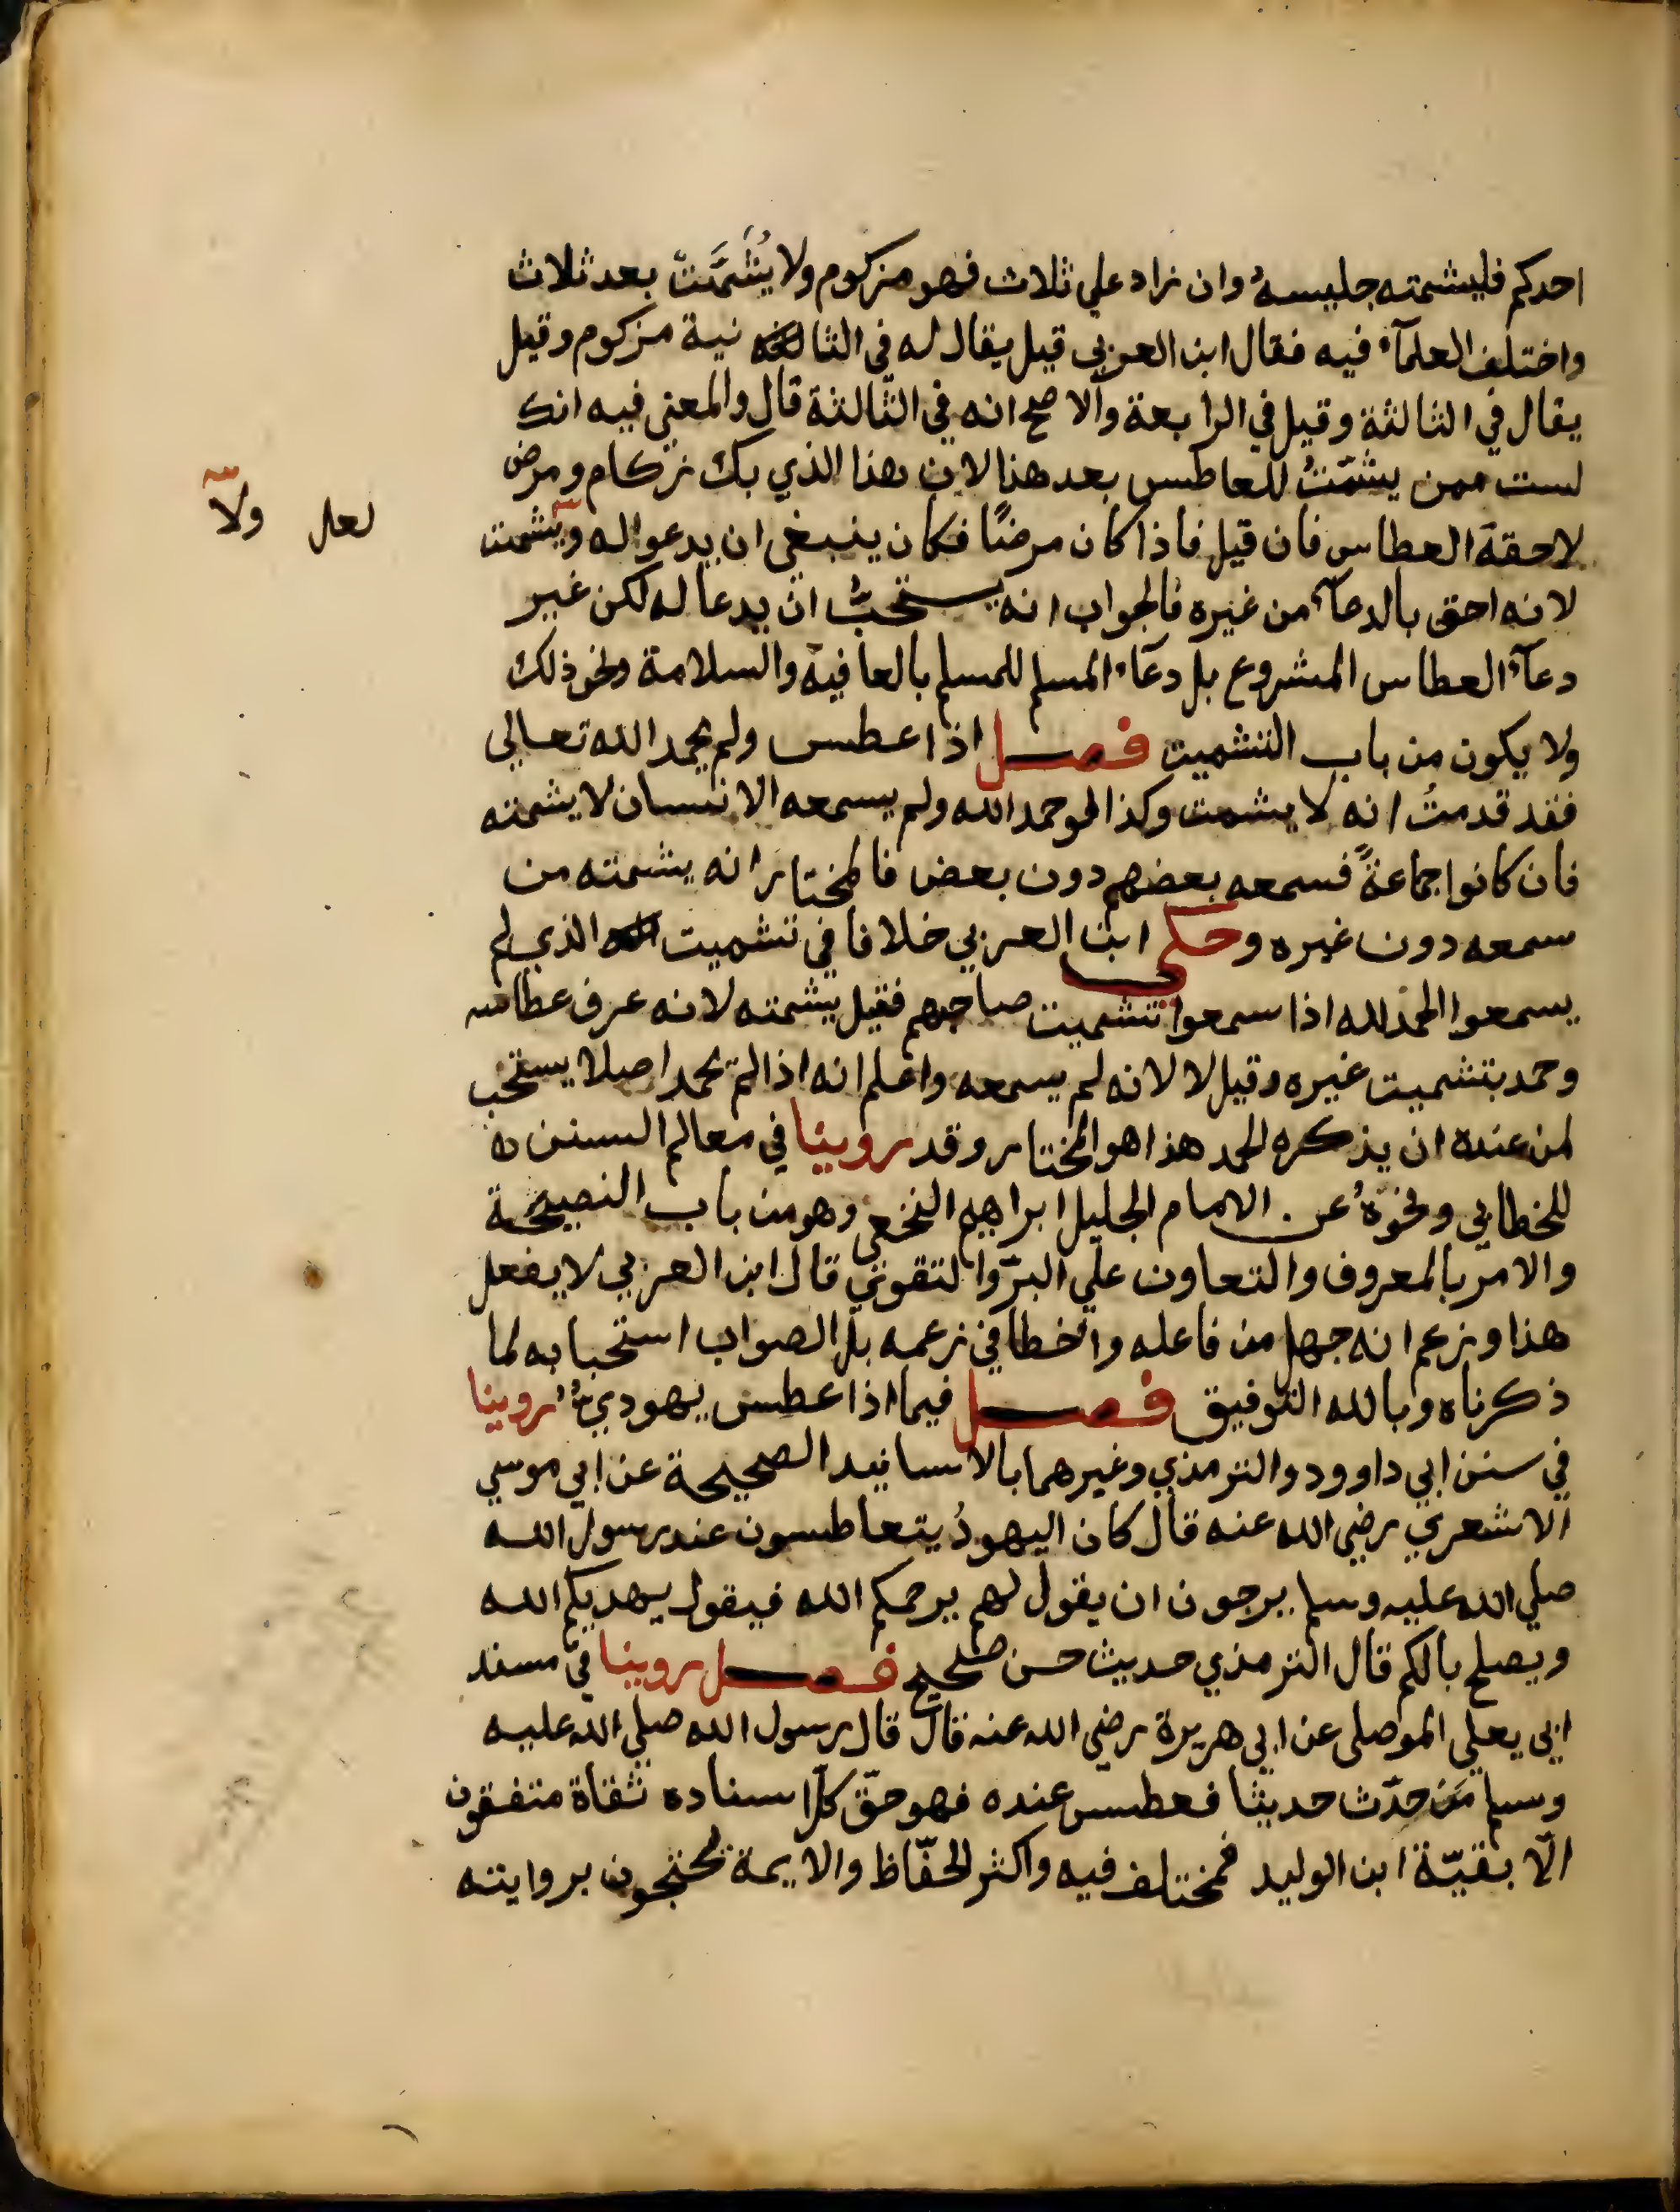 احدكم فليشمته جليسهُ وان زاد علي ثلاث فهو مزكوم ولا يُشَمَّتْ بعد ثلاث
واختلف العلمآء فيه فقال ابن العربي قيل يقال له في الثا نية مزكوم وقيل
يقال في الثالثة وقيل في الرابعة والاصح انه في الثّالثة قال والمعني فيه انك
لست ممن يشمّتُ للعاطس بعد هذا لان هذا الذي بك زكام ومرض
لاحقة العطاس فان قيل فاذا كان مرضًا فكان ينبغي ان يدعوا له ويشمت
لعل ولا
لانه احق بالدعآء من غيره فالجواب انه يستحبُّ ان يدعا له لكن غير
دعآء العطاس المشروع بل دعآء المسلم للمسلم بالعافية والسلامة ونحو ذلك
ولا يكون من باب التشميت فصل اذا عطس ولم يحمد الله تعالي
فقد قدمتُ انه لا يشمت وكذا لو حمد الله ولم يسمعه الانسان لا يشمته
فان كانوا جماعةً فسمعه بعضهم دون بعض فالمختار انه يشمته من
سمعه دون غيره وحكي ابن العربي خلافا في تشميت الذي لم
يسمعوا الحمد لله اذا سمعوا تشميت صاحبهم فقيل يشمته لانه عرف عطاسه
وحمد بتشميت غيره وقيل لا لانه لم يسمعه واعلم انه اذا لم يحمد اصلا يستحب
لمن عنده ان يذكره الحمد هذا هو المختار وقد روينا في معالم السنن
للخطابي ونحوهُ عن الامام الجليل ابراهيم النخعي وهو من باب النصيحة
والامر بالمعروف والتعاون علي البرّ والتقوي قال ابن العربي لا يفعل
هذا وزعم انه جهل من فاعله واخطا في زعمه بل الصواب استحبابه لما
ذكرناه وبالله التوفيق فصل فيما اذا عطس يهودي روينا
في سنن ابي داوود والترمذي وغيرهما بالاسانيد الصحيحة عن ابي موسي
الاشعري رضي الله عنه قال كان اليهودُ يتعاطسون عند رسول الله
صلي الله عليه وسلم يرجون ان يقول لهم يرحمكم الله فيقول يهديكم الله
ويصلح بالكم قال الترمذي حديث حسن صحيح فصل روينا في مسند
ابي يعلي الموصلي عن ابي هريرة رضي الله عنه قال قال رسول الله صلي الله عليه
وسلم مَن حدّث حديثا فعطس عنده فهو حقّ كل اسناده ثقاة متفقون
الّا بقيّة ابن الوليد فمختلف فيه واكثر الحفّاظ والايمة يحتجون بروايته